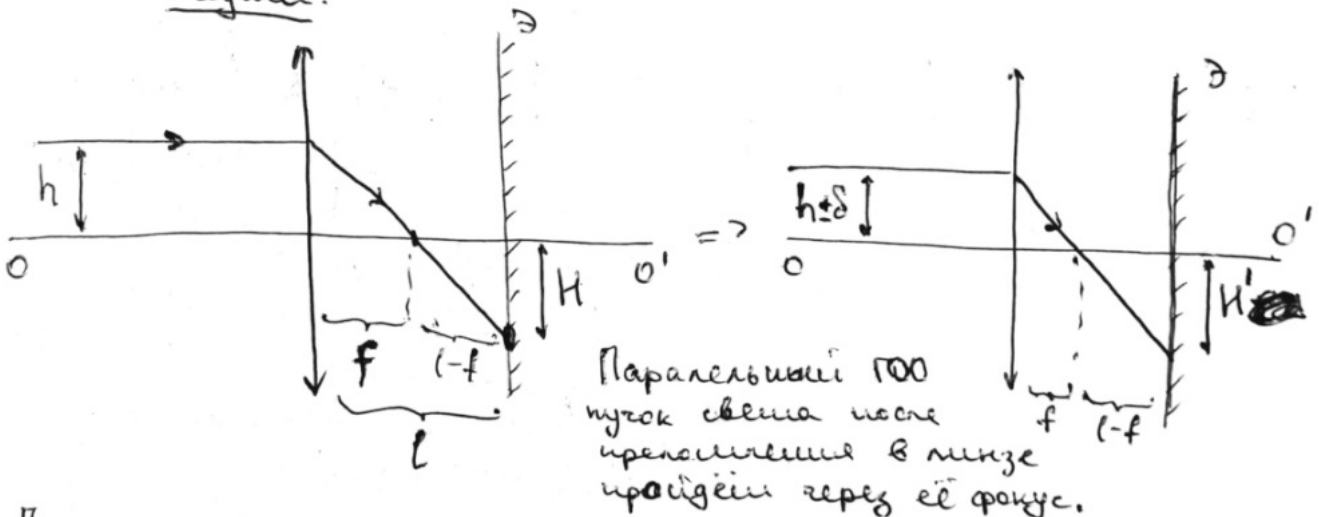 Э
h
O
f
l-f
l
H
O'
=>
Э
h±δ
O
f
l-f
H'
O'
Паралельный ГОО
пучок света после
преломления в линзе
пройдёт через её фокус.